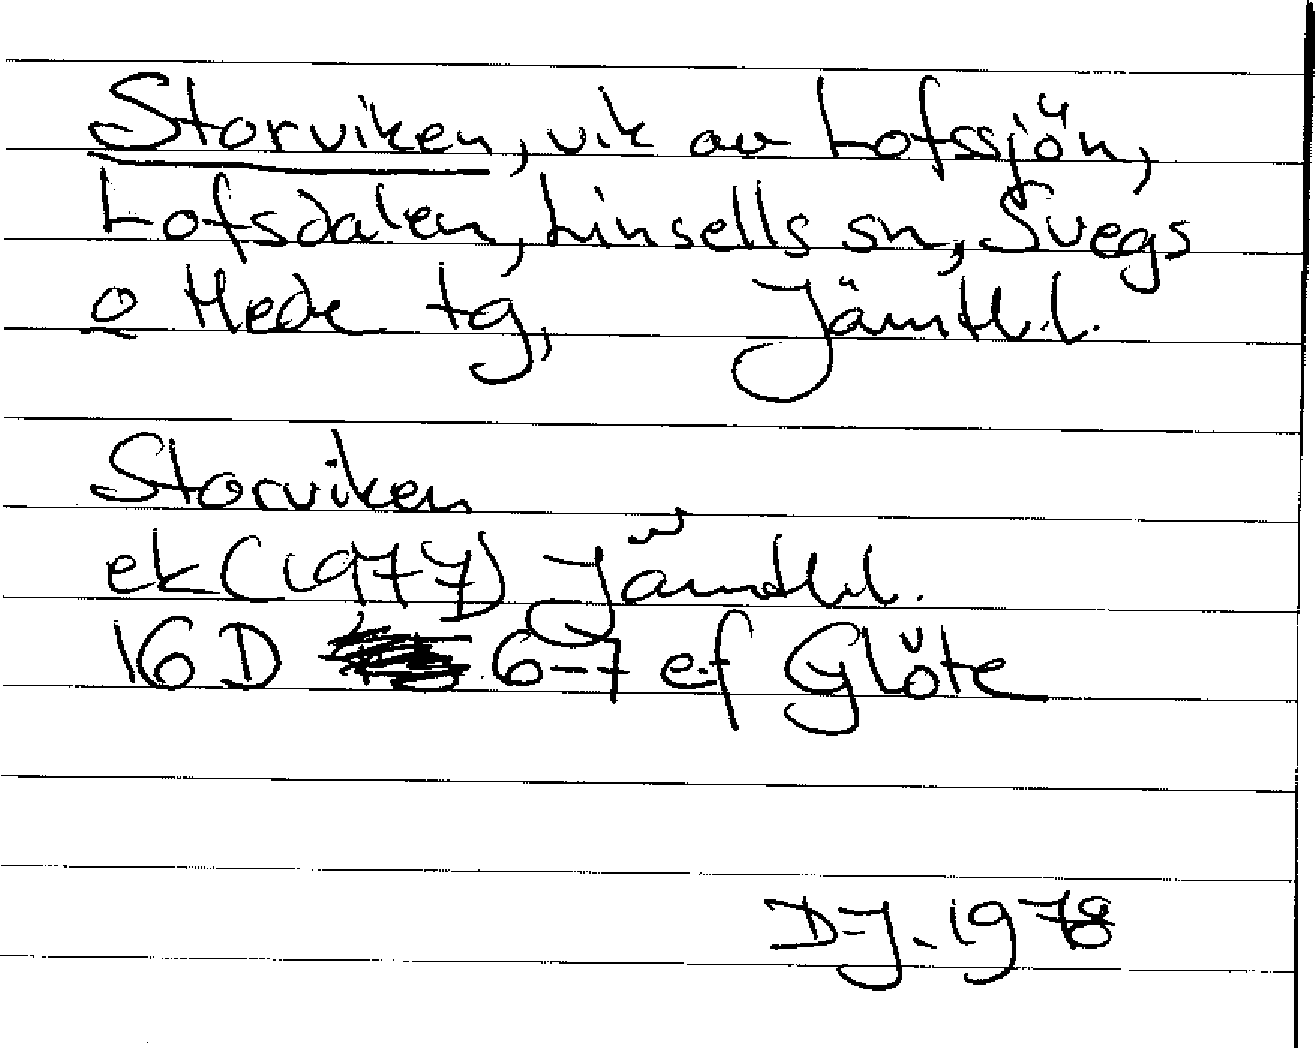 Storviken, vik av Lofssjön,
Lofsdalen, Linsells sn, Svegs
o Hede tg, Jämtl.l.
Storviken
ek (1977) Jämtl.l.
16 D 6-7 ef Glöte
DJ. 1978